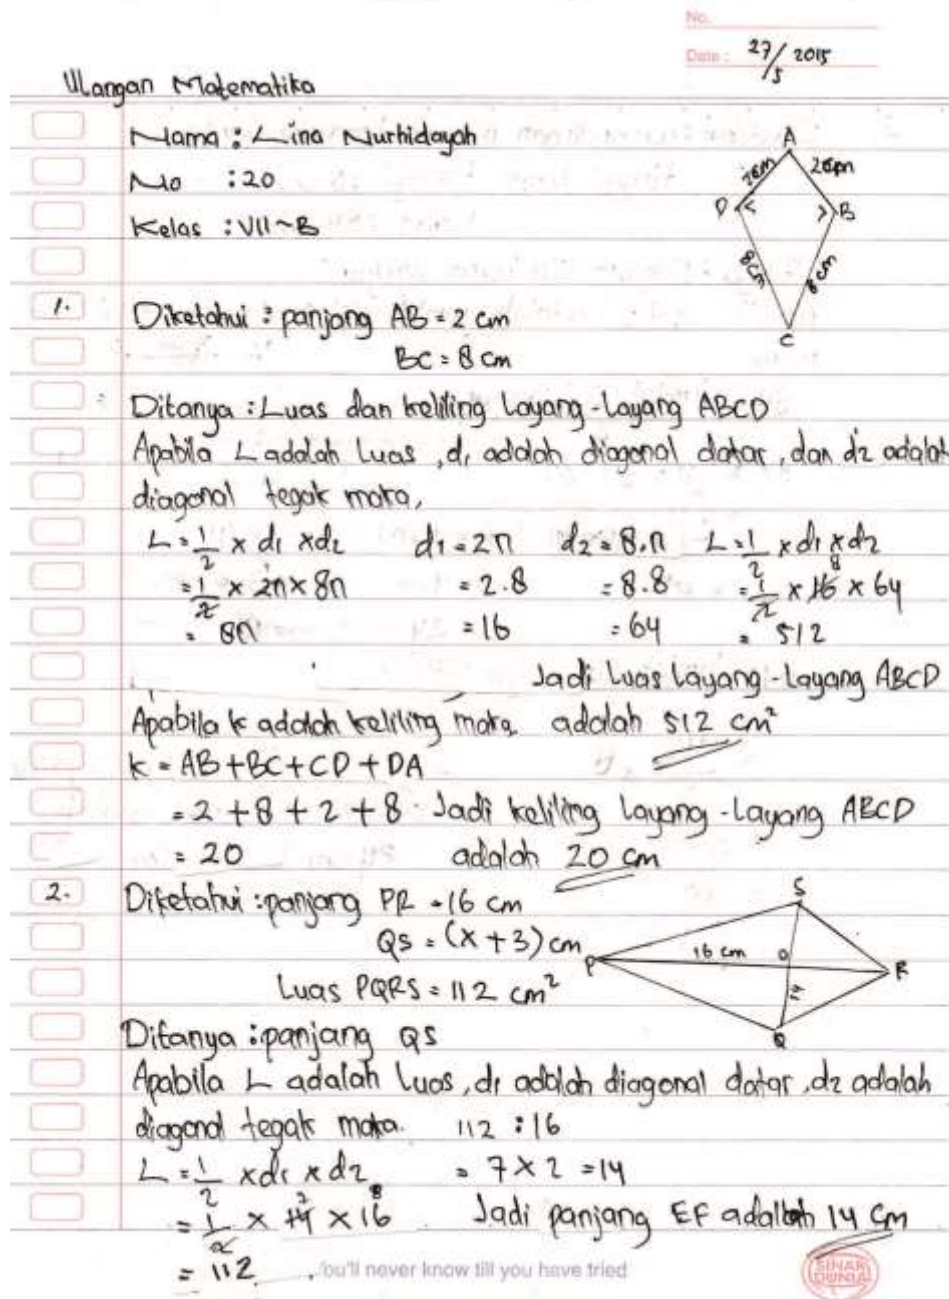 No.
Date : 27/5 2015
Ulangan Matematika
Nama : Lina Nurhidayah
No : 20
Kelas : VII~B
A
2cm 2cm
D B
8cm 8cm
C
1. Diketahui : panjang AB = 2 cm
BC = 8 cm
Ditanya : Luas dan keliling Layang-Layang ABCD
Apabila L adalah Luas, d1 adalah diagonal datar, dan d2 adalah
diagonal tegak maka,
L = 1/2 x d1 x d2 d1 = 2n d2 = 8.n L = 1/2 x d1 x d2
= 1/2 x 2n x 8n = 2.8 = 8.8 = 1/2 x 16 8 x 64
= 8n = 16 = 64 = 512
Jadi Luas Layang-Layang ABCD
Apabila k adalah keliling maka adalah 512 cm²
k = AB + BC + CD + DA
= 2 + 8 + 2 + 8 Jadi keliling Layang-Layang ABCD
= 20 adalah 20 cm
2. Diketahui : panjang PR = 16 cm
QS = (x+3) cm
Luas PQRS = 112 cm²
S
P 16 cm O R
14
Q
Ditanya : panjang QS
Apabila L adalah Luas, d1 adalah diagonal datar, d2 adalah
diagonal tegak maka. 112 : 16
L = 1/2 x d1 x d2 = 7 x 2 = 14
= 1/2 x 14 x 16 8 Jadi panjang EF adallah 14 cm
= 112
You'll never know till you have tried
SINAR DUNIA